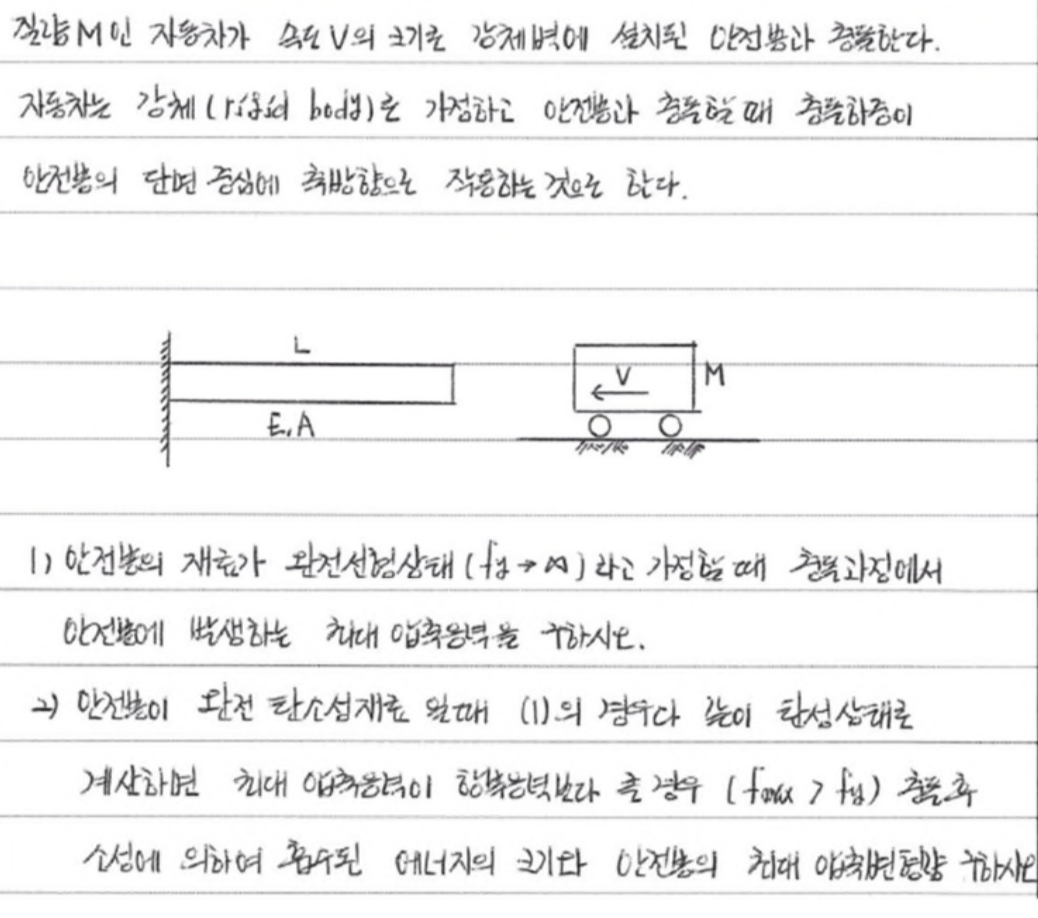 질량 M인 자동차가 속도 V의 크기로 강체벽에 설치된 안전봉과 충돌한다.
자동차는 강체 (rigid body)로 가정하고 안전봉과 충돌할 때 충돌하중이
안전봉의 단면 중심에 축방향으로 작용하는 것으로 한다.
L
E, A
V
M
1) 안전봉의 재료가 완전선형상태 (fy → ∞) 라고 가정할 때 충돌과정에서
안전봉에 발생하는 최대 압축응력을 구하시오.
2) 안전봉이 완전 탄소성재료 일때 (1)의 경우와 같이 탄성상태로
계산하면 최대 압축응력이 항복응력보다 클 경우 (fmax > fy) 충돌후
소성에 의하여 흡수된 에너지의 크기와 안전봉의 최대 압축변형량 구하시오